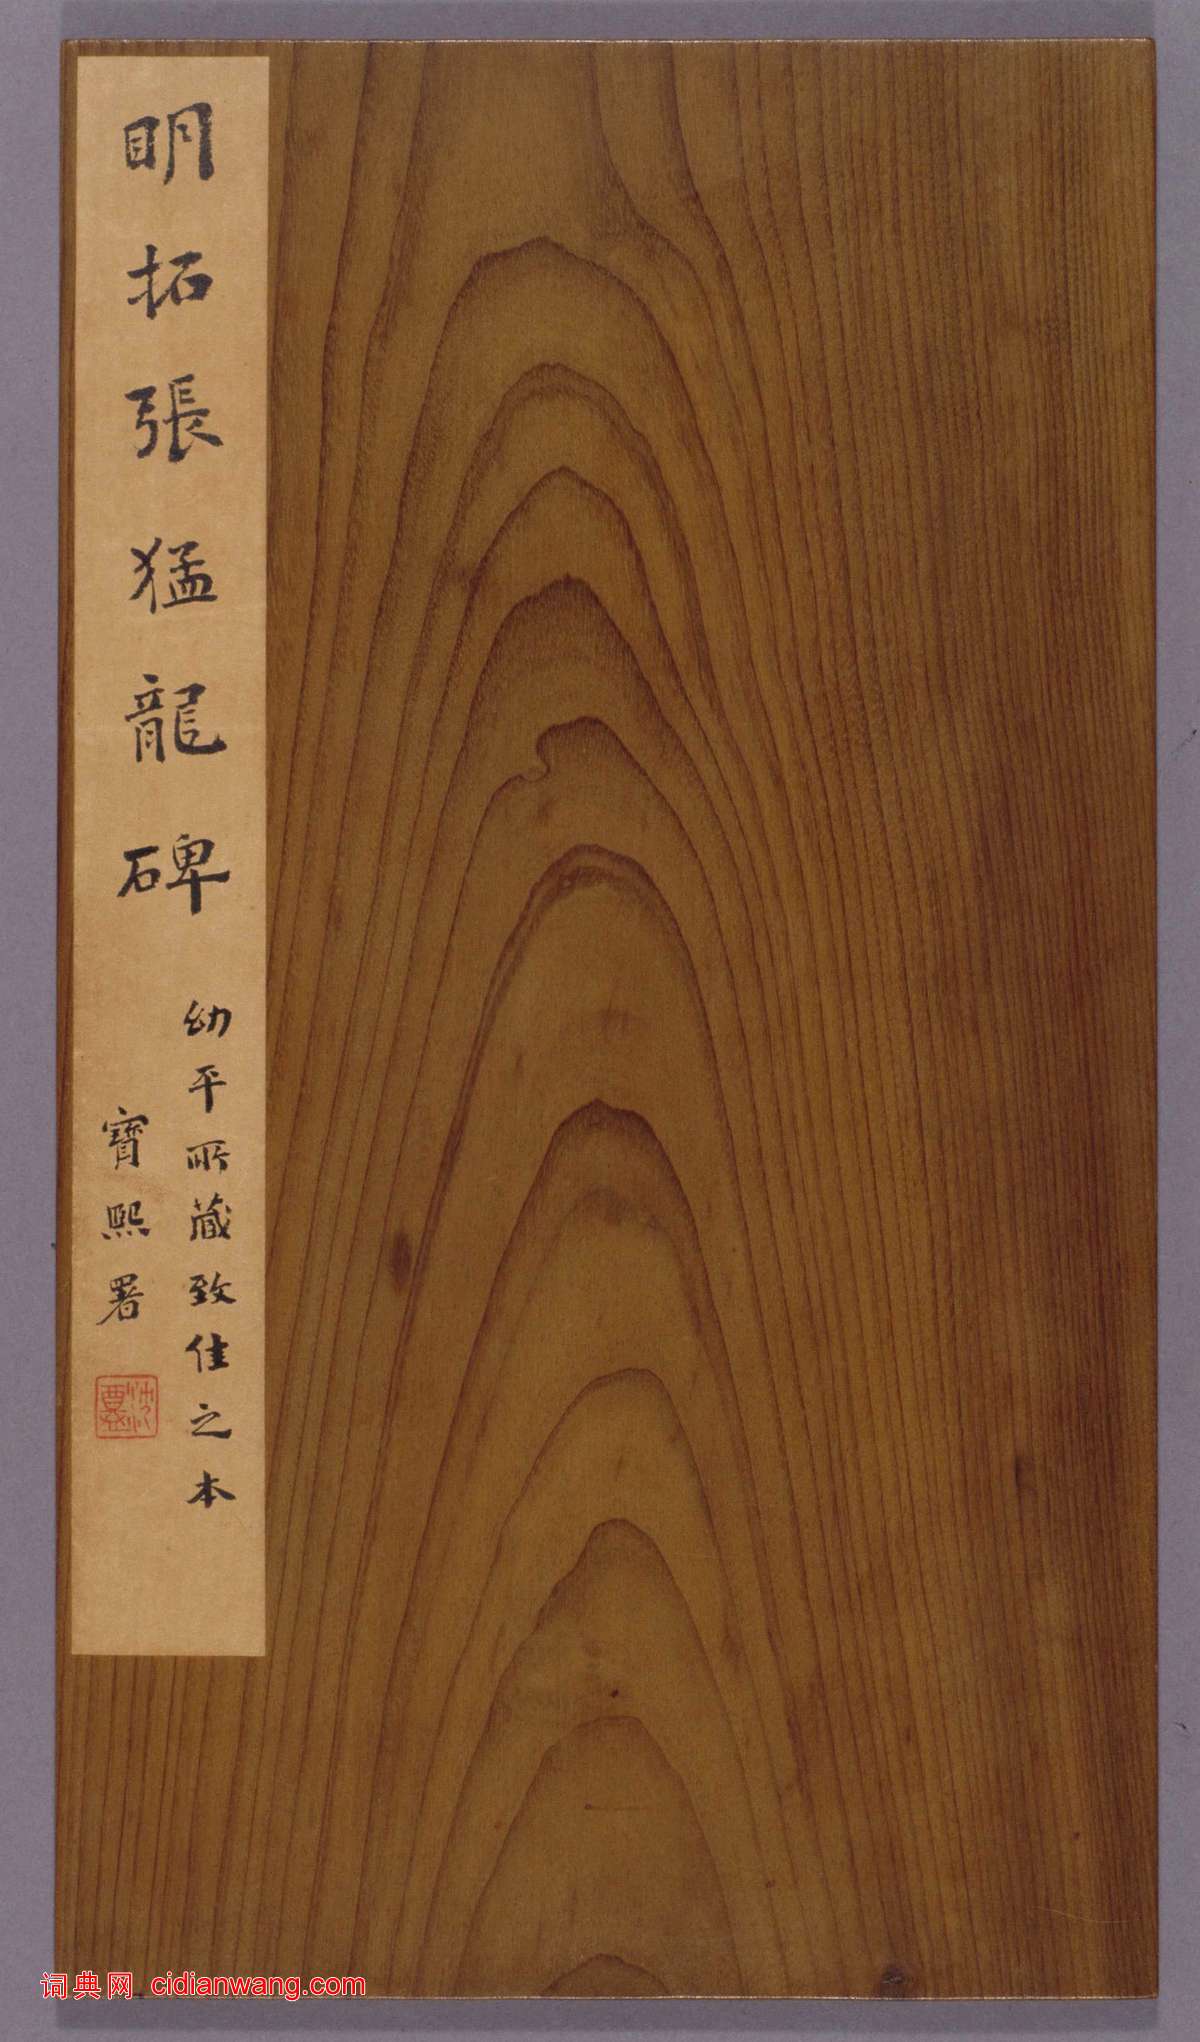 明拓張猛龍碑
幼平所藏致佳之本
寶熙署
词典网 cidianwang.com